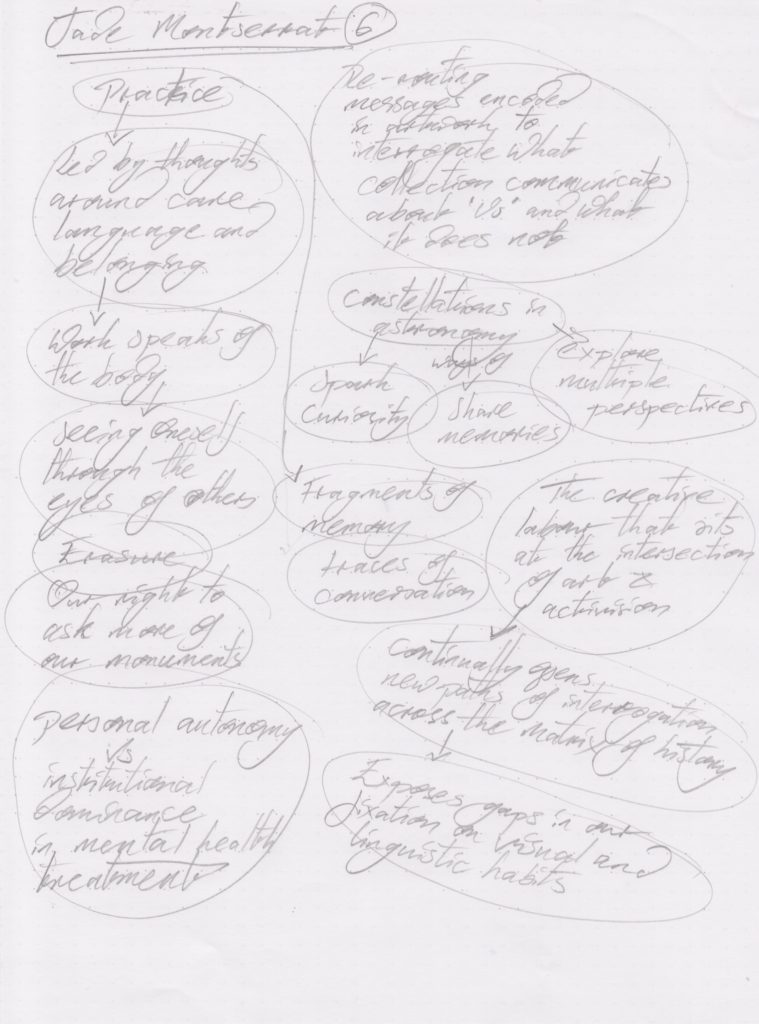 Jade Montserrat 6
Practice
Led by thoughts
around care
language and
belonging
Work speaks of
the body
seeing oneself
through the
eyes of others
Erasure
Our right to
ask more of
our monuments
personal autonomy
vs
institutional
dominance
in mental health
treatment
Re-routing
messages encoded
in artwork to
interrogate what
collection communicates
about 'Us' and what
it does not
constellations in
astronomy
ways of
spark
curiosity
share
memories
explore
multiple
perspectives
Fragments of
memory
traces of
conversation
The creative
labour that sits
at the intersection
of art &
activision
continually opens
new paths of interrogation
across the matrix of history
Exposes gaps in our
fixation on visual and
linguistic habits